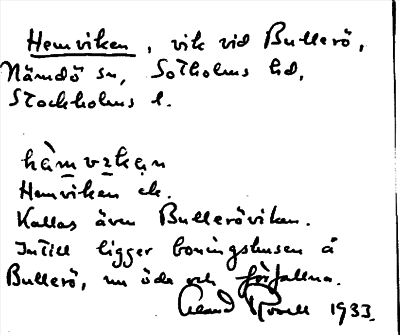 Hemviken, vik vid Bullerö,
Nämdö sn, Sotholms hd,
Stockholms l.
Hemviken ek.
Kallas även Bulleröviken.
Intill ligger boningshusen å
Bullerö, nu öde och förfallna.
1933.